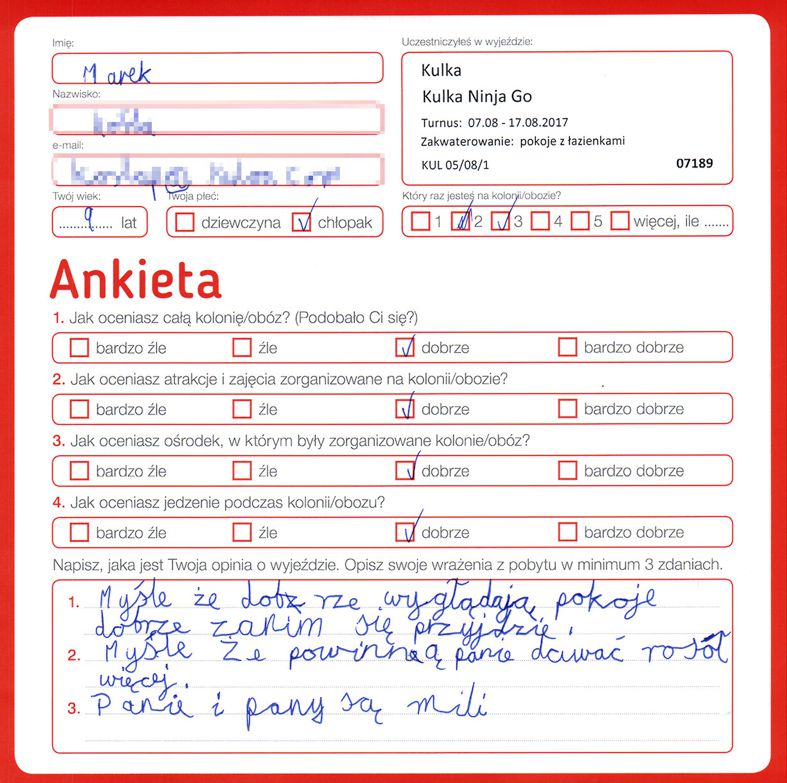 Imię:
Marek
Nazwisko:
e-mail:
Twój wiek:
9 lat
Twoja płeć:
dziewczyna chłopak
Uczestniczyłeś w wyjeździe:
Kulka
Kulka Ninja Go
Turnus: 07.08 - 17.08.2017
Zakwaterowanie: pokoje z łazienkami
KUL 05/08/1 07189
Który raz jesteś na kolonii/obozie?
1 2 3 4 5 więcej, ile .......
Ankieta
1. Jak oceniasz całą kolonię/obóz? (Podobało Ci się?)
bardzo źle źle dobrze bardzo dobrze
2. Jak oceniasz atrakcje i zajęcia zorganizowane na kolonii/obozie?
bardzo źle źle dobrze bardzo dobrze
3. Jak oceniasz ośrodek, w którym były zorganizowane kolonie/obóz?
bardzo źle źle dobrze bardzo dobrze
4. Jak oceniasz jedzenie podczas kolonii/obozu?
bardzo źle źle dobrze bardzo dobrze
Napisz, jaka jest Twoja opinia o wyjeździe. Opisz swoje wrażenia z pobytu w minimum 3 zdaniach.
1. Myśle że dobż rze wyglądają pokoje
dobrze zanim się przyjdzie.
2. Myśle że powinną panie dawać rosół
więcej.
3. Panie i pany są mili